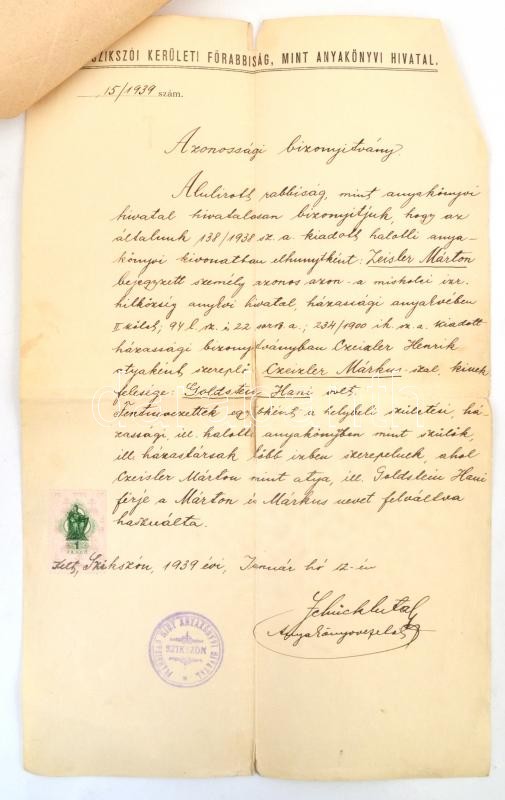 SZIKSZÓI KERÜLETI FŐRABBISÁG, MINT ANYAKÖNYVI HIVATAL.
15/1939 szám.
Azonossági bizonyitvány.
Alulirott rabbiság, mint anyakönyvi
hivatal hivatalosan bizonyitjuk, hogy az
általunk 138/1938 sz. a. kiadott halotti anya-
könyvi kivonatban elhunytként: Zeisler Márton
bejegyzett személy azonos azon - a miskolci izr.
hitközség anykvi hivatal, házassági anyakvében
II kötet; 94 l. sz. i 22 sorsz. a.; 234/1900 ik sz. a. kiadott
házassági bizonyitványban Czeizler Henrik
atyaként szereplő Czeizler Márkus-szal, kinek
felesége Goldstein Hani volt.
Fentnevezettek egyébként a helybeli születési, há-
zassági, ill. halotti anyakönyvben mint szülők,
ill. házastársak több izben szerepelnek, ahol
Czeisler Márton mint atya, ill. Goldstein Hani
férje a Márton és Márkus nevet felváltva
használta.
Kelt, Szikszón, 1939 évi, Január hó 12-én
Anyakönyvvezető
MINT ANYAKÖNYVI HIVATAL
SZIKSZÓN
1